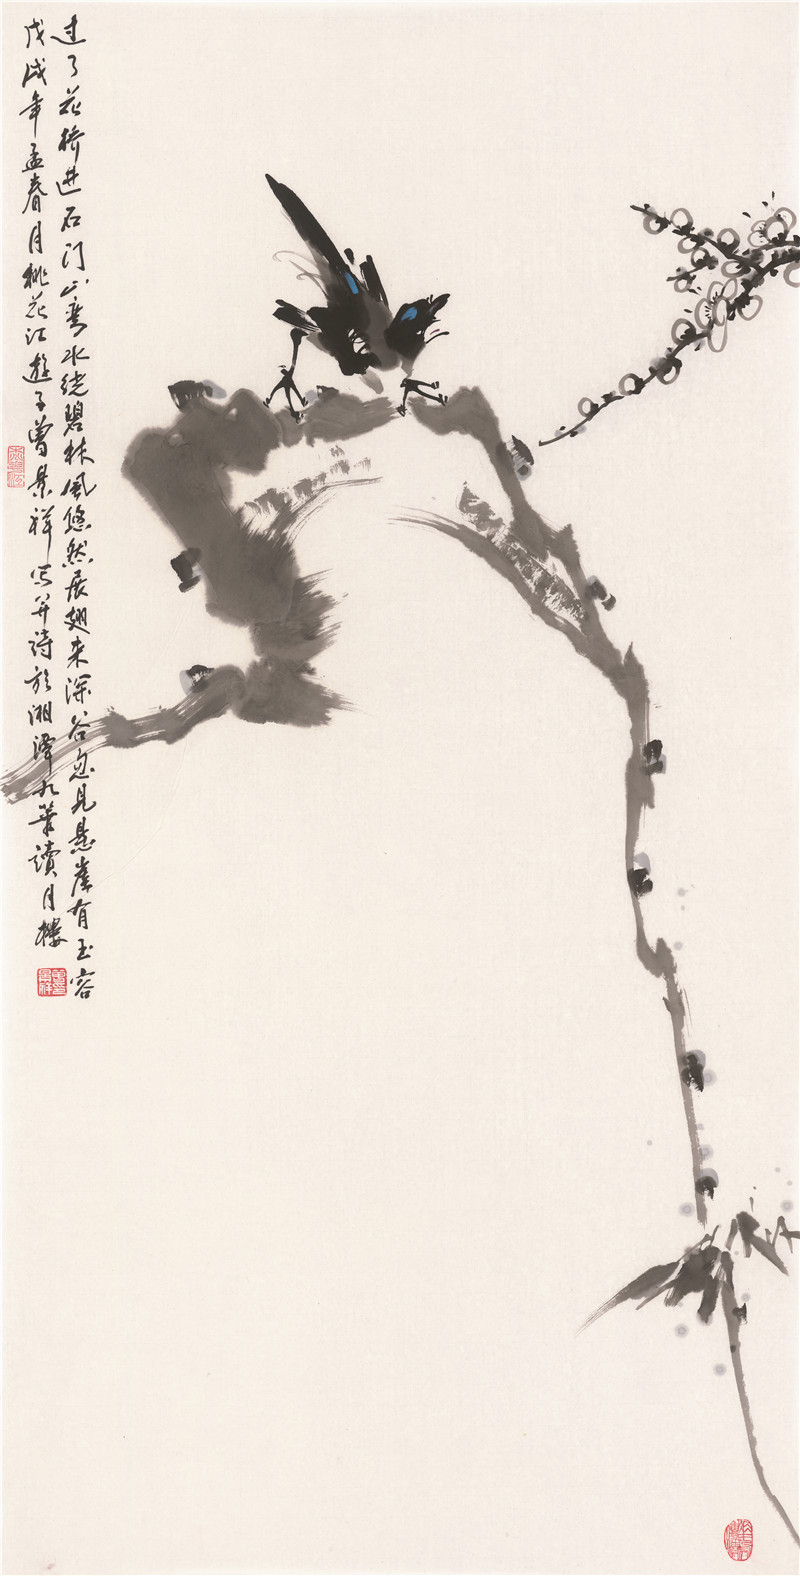 过了花桥进石门山弯水绕碧林风悠然展翅来深谷忽见悬崖有玉容
戊戌年孟春月桃花江游子曾景祥写并诗于湘泽九华读月楼